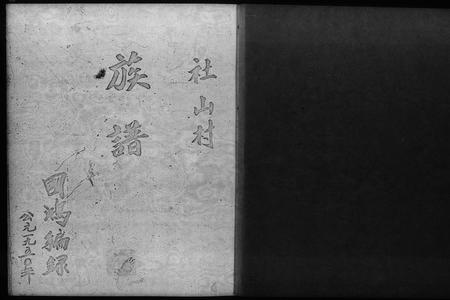 社山村
族譜
国鸿編録
公元一九五〇年